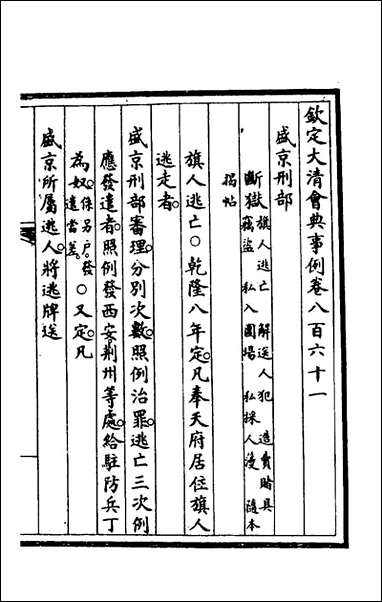 欽定大清會典事例卷八百六十一
盛京刑部
斷獄旗人逃亡 解送人犯 造賣賭具
竊盜 私入圍場 私採人葠 隨本
揭帖
旗人逃亡○乾隆八年定。凡奉天府居住旗人
逃走者。
盛京刑部審理。分別次數。照例治罪。逃亡三次例
應發遣者。照例發西安荆州等處。給駐防兵丁
為奴。係另戶。發遣當差。○又定。凡
盛京所屬逃人。將逃牌送